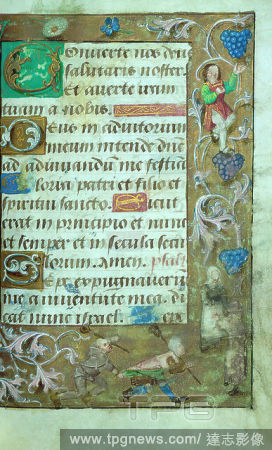 Converte nos deus
salutaris noster.
Et averte iram
tuam a nobis.
Deus in adiutorium
meum intende Dne
ad adiuvandum me festina
Gloria patri et filio et
spiritui sancto. Sicut
erat in principio et nunc
et semper et in secula secu
lorum. Amen. psal
Sepe expugnaverut
me a iuventute mea. di
cat nunc israel. Sepe
TPG
www.tpgnews.com/達志影像